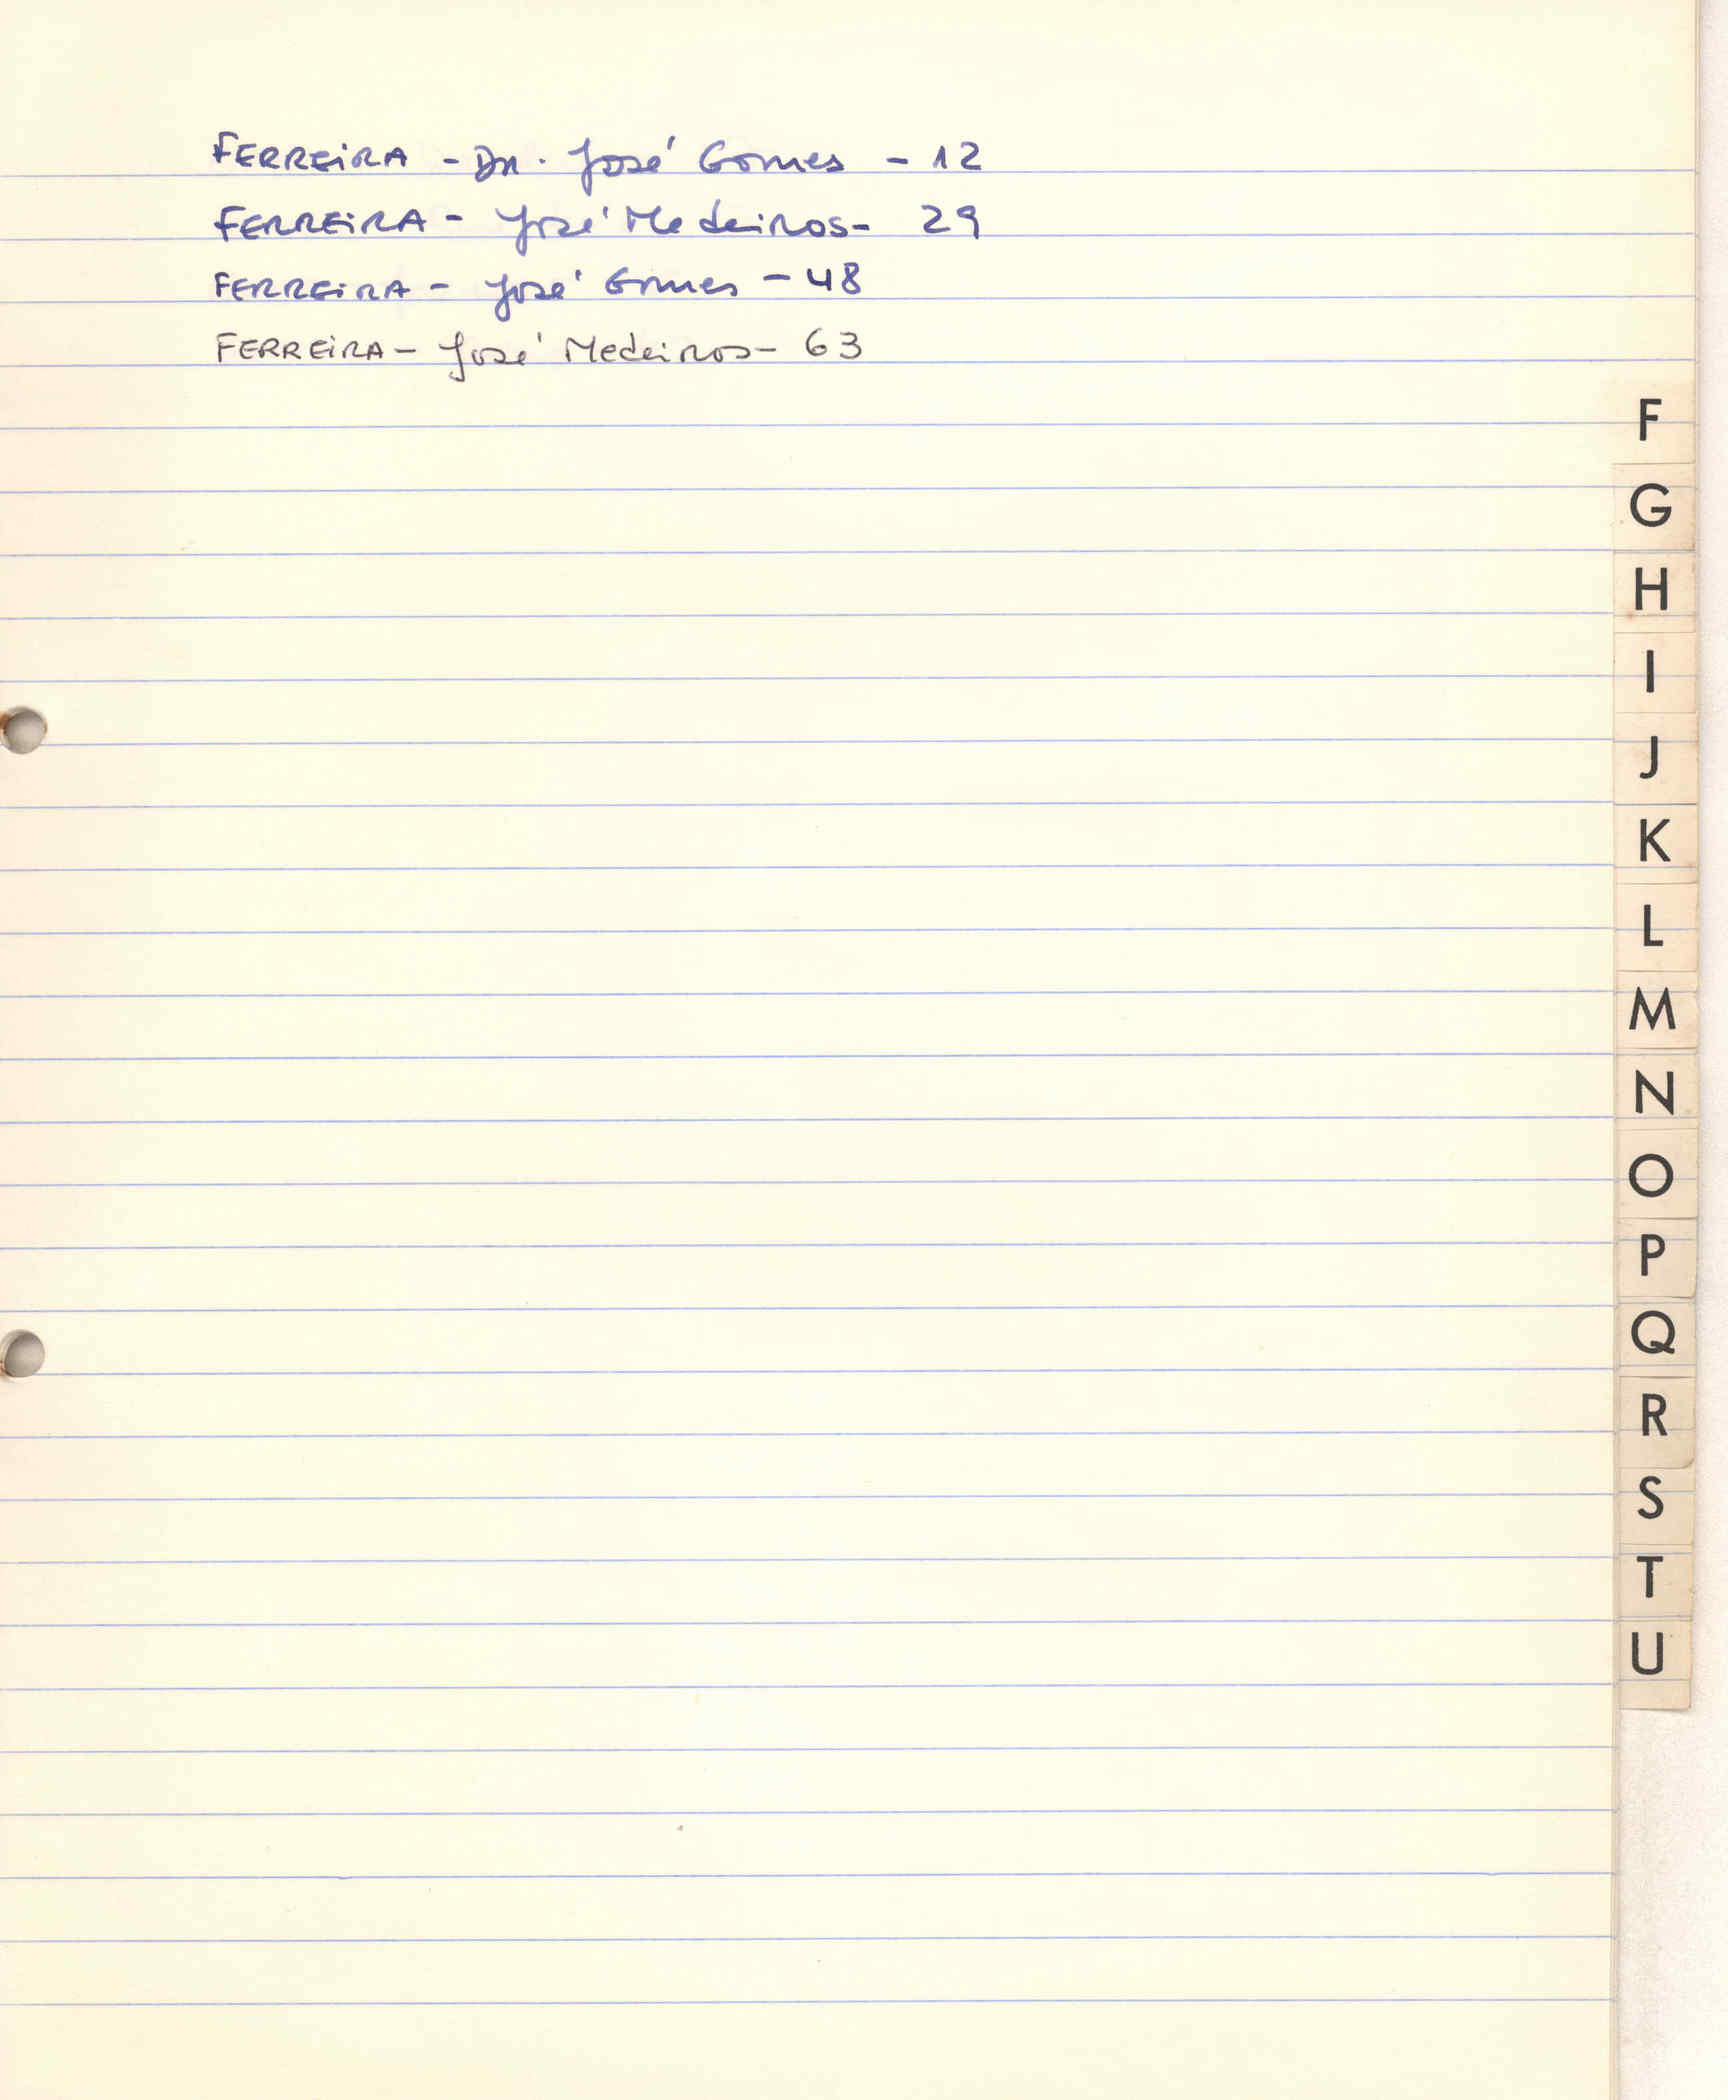 FERREIRA - Dr. José Gomes - 12
FERREIRA - José Medeiros - 29
FERREIRA - José Gomes - 48
FERREIRA - José Medeiros - 63
F
G
H
I
J
K
L
M
N
O
P
Q
R
S
T
U